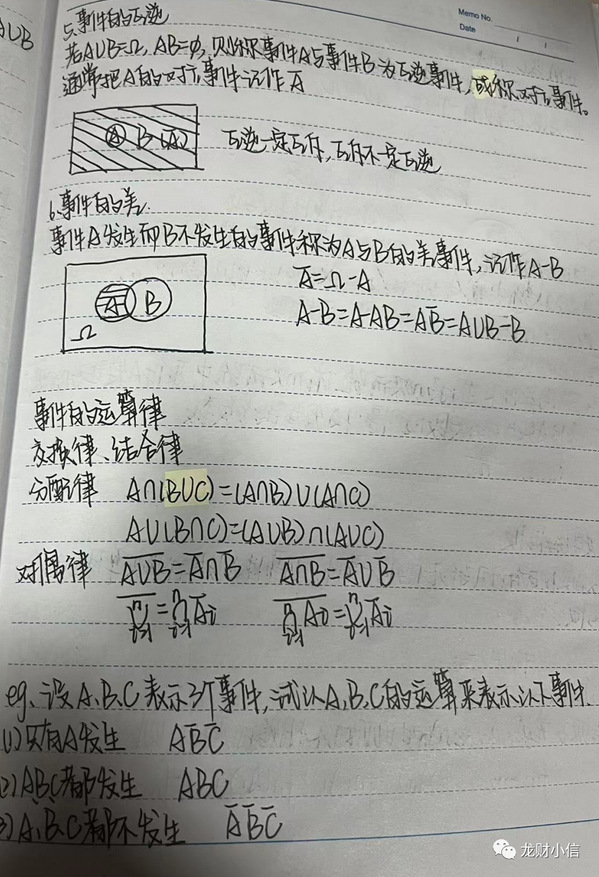 AUB
Memo No.
Date / /
5.事件的互逆
若AUB=Ω, AB=φ, 则称事件A与事件B为互逆事件, 或称对立事件。
通常把A的对立事件记作Ā
A B(Ā) 互逆一定互斥, 互斥不一定互逆
6.事件的差.
事件A发生而B不发生的事件称为A与B的差事件, 记作A-B
A B Ω
Ā=Ω-A
A-B=A-AB=AB̅=AUB-B
事件的运算律
交换律、结合律
分配律 A∩(BUC)=(A∩B)U(A∩C)
AU(B∩C)=(AUB)∩(AUC)
对偶律 A̅U̅B̅=A̅∩B̅ A̅∩̅B̅=A̅UB̅
eg、设A、B、C表示3个事件, 试以A、B、C的运算来表示以下事件
(1)只有A发生 AB̅C̅
(2)A、B、C都发生 ABC
3)A、B、C都不发生 A̅B̅C̅
龙财小信